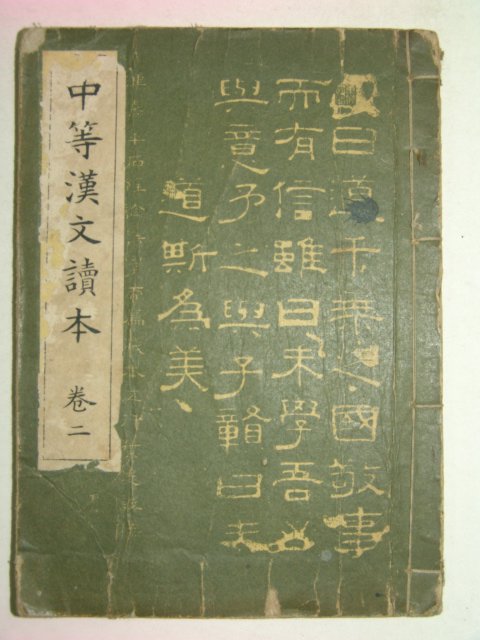 曰道千乗之國敬事
而有信雖曰未學吾必
與意予之與子贛曰夫
道斯為美
中等漢文讀本 卷二